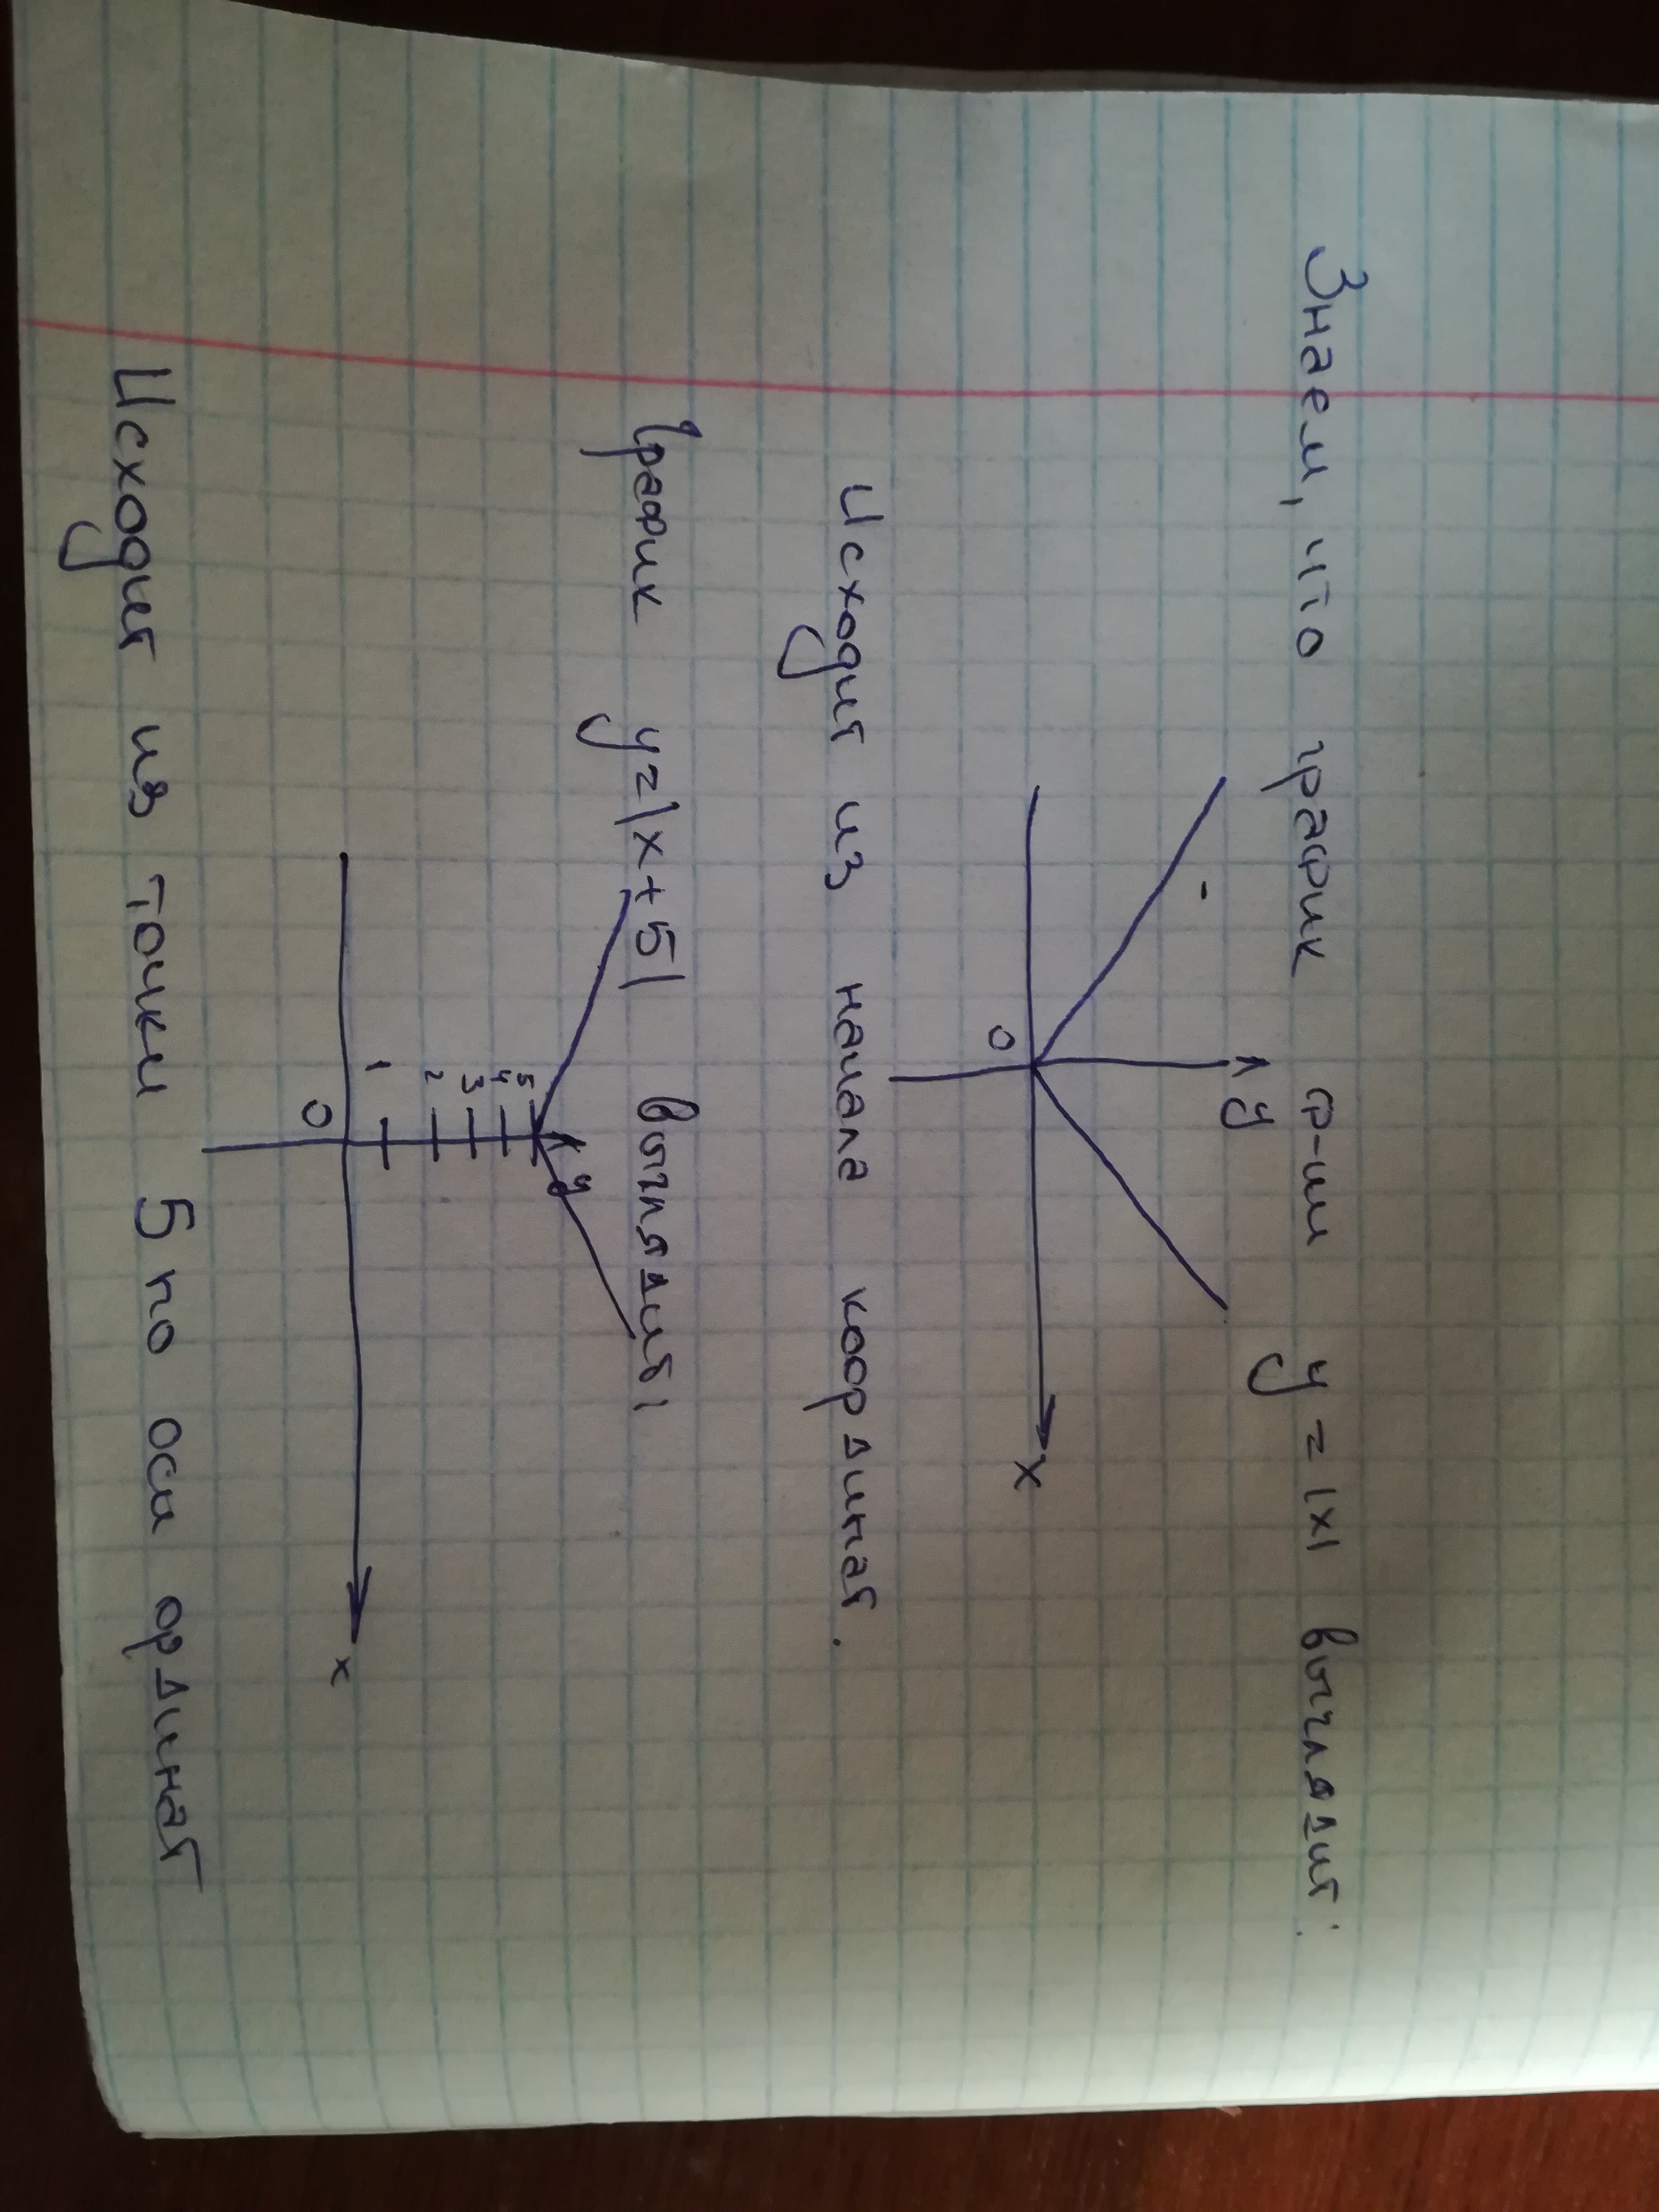 Знаем, что график ф-ии y = |x| выглядит:
y
0
x
Исходит из начала координат.
График y=|x+5| выглядит:
y
5
4
3
2
1
0
x
Исходит из точки 5 по оси ординат